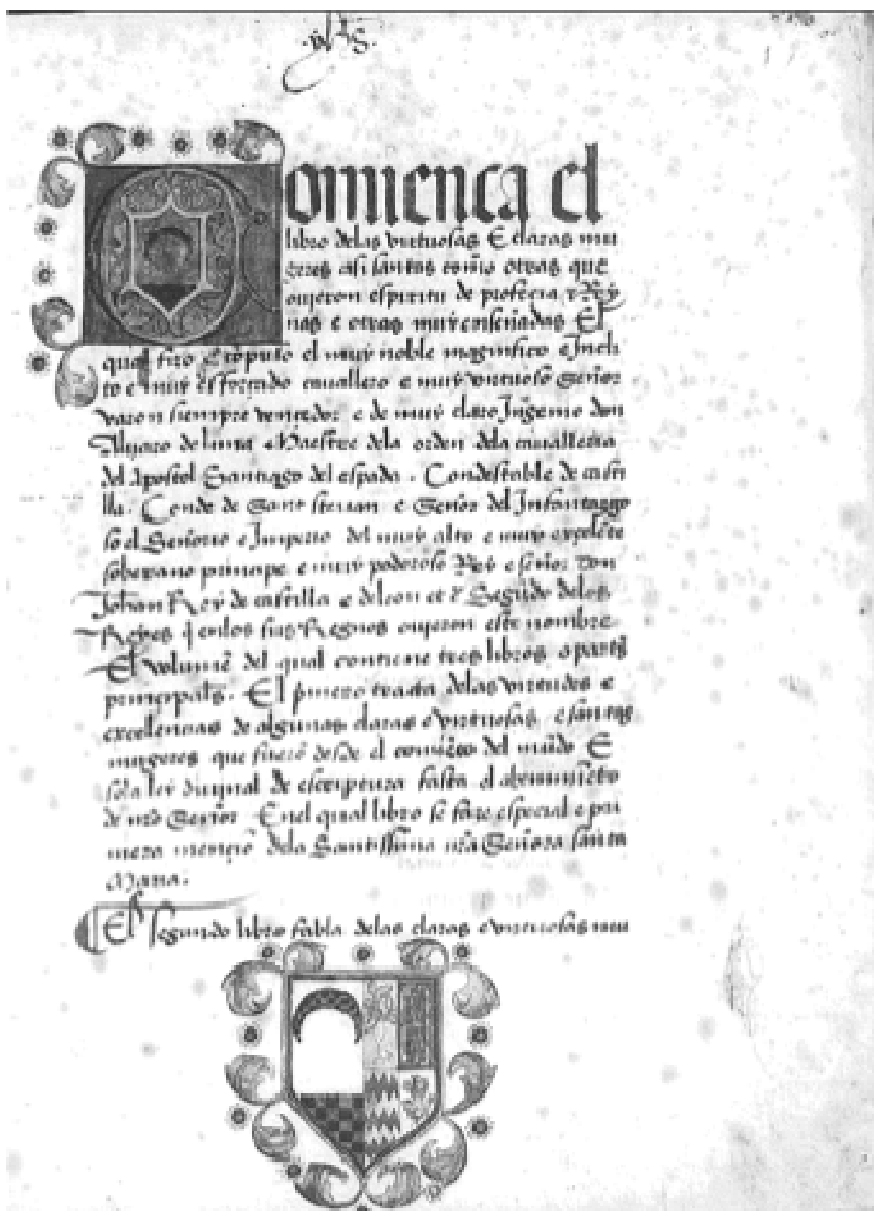 Comiença el
libro delas virtuosas E claras mu
geres asi santas como otras que
ouieron espiritu de profecia e Rey
nas e otras muy enseñadas El
qual fizo e cõpuso el muy noble magnifico e Incli
to e muy esforçado cauallero e muy virtuoso Señor
varon siempre vencedor e de muy claro Ingenio don
Aluaro de luna Maestre dela orden dela caualleria
del Apostol Santiago del espada. Condestable de casti
lla. Conde de Sant steuan e Señor del Infantazgo
so el Señorio e Imperio del muy alto e muy exçelẽte
soberano prinçipe e muy poderoso Rey e señor don
Johan Rey de castilla e deleon et c̃ Segũdo delos
Reyes q̃ enlos sus Regnos ouieron este nombre
El volumẽ del qual contiene tres libros o partes
prinçipales. El primero tracta delas virtudes e
exçelençias de algunas claras e virtuosas e santas
mugeres que fuerõ desde el comiẽço del mũdo E
sola ley diuinal de escriptura fasta el
de nr̃o Señor. Enel qual libro se faze espeçial e pri
mera mençiõ dela Santissima nr̃a Señora santa
Maria.
El segundo libro fabla delas claras e virtuosas mu